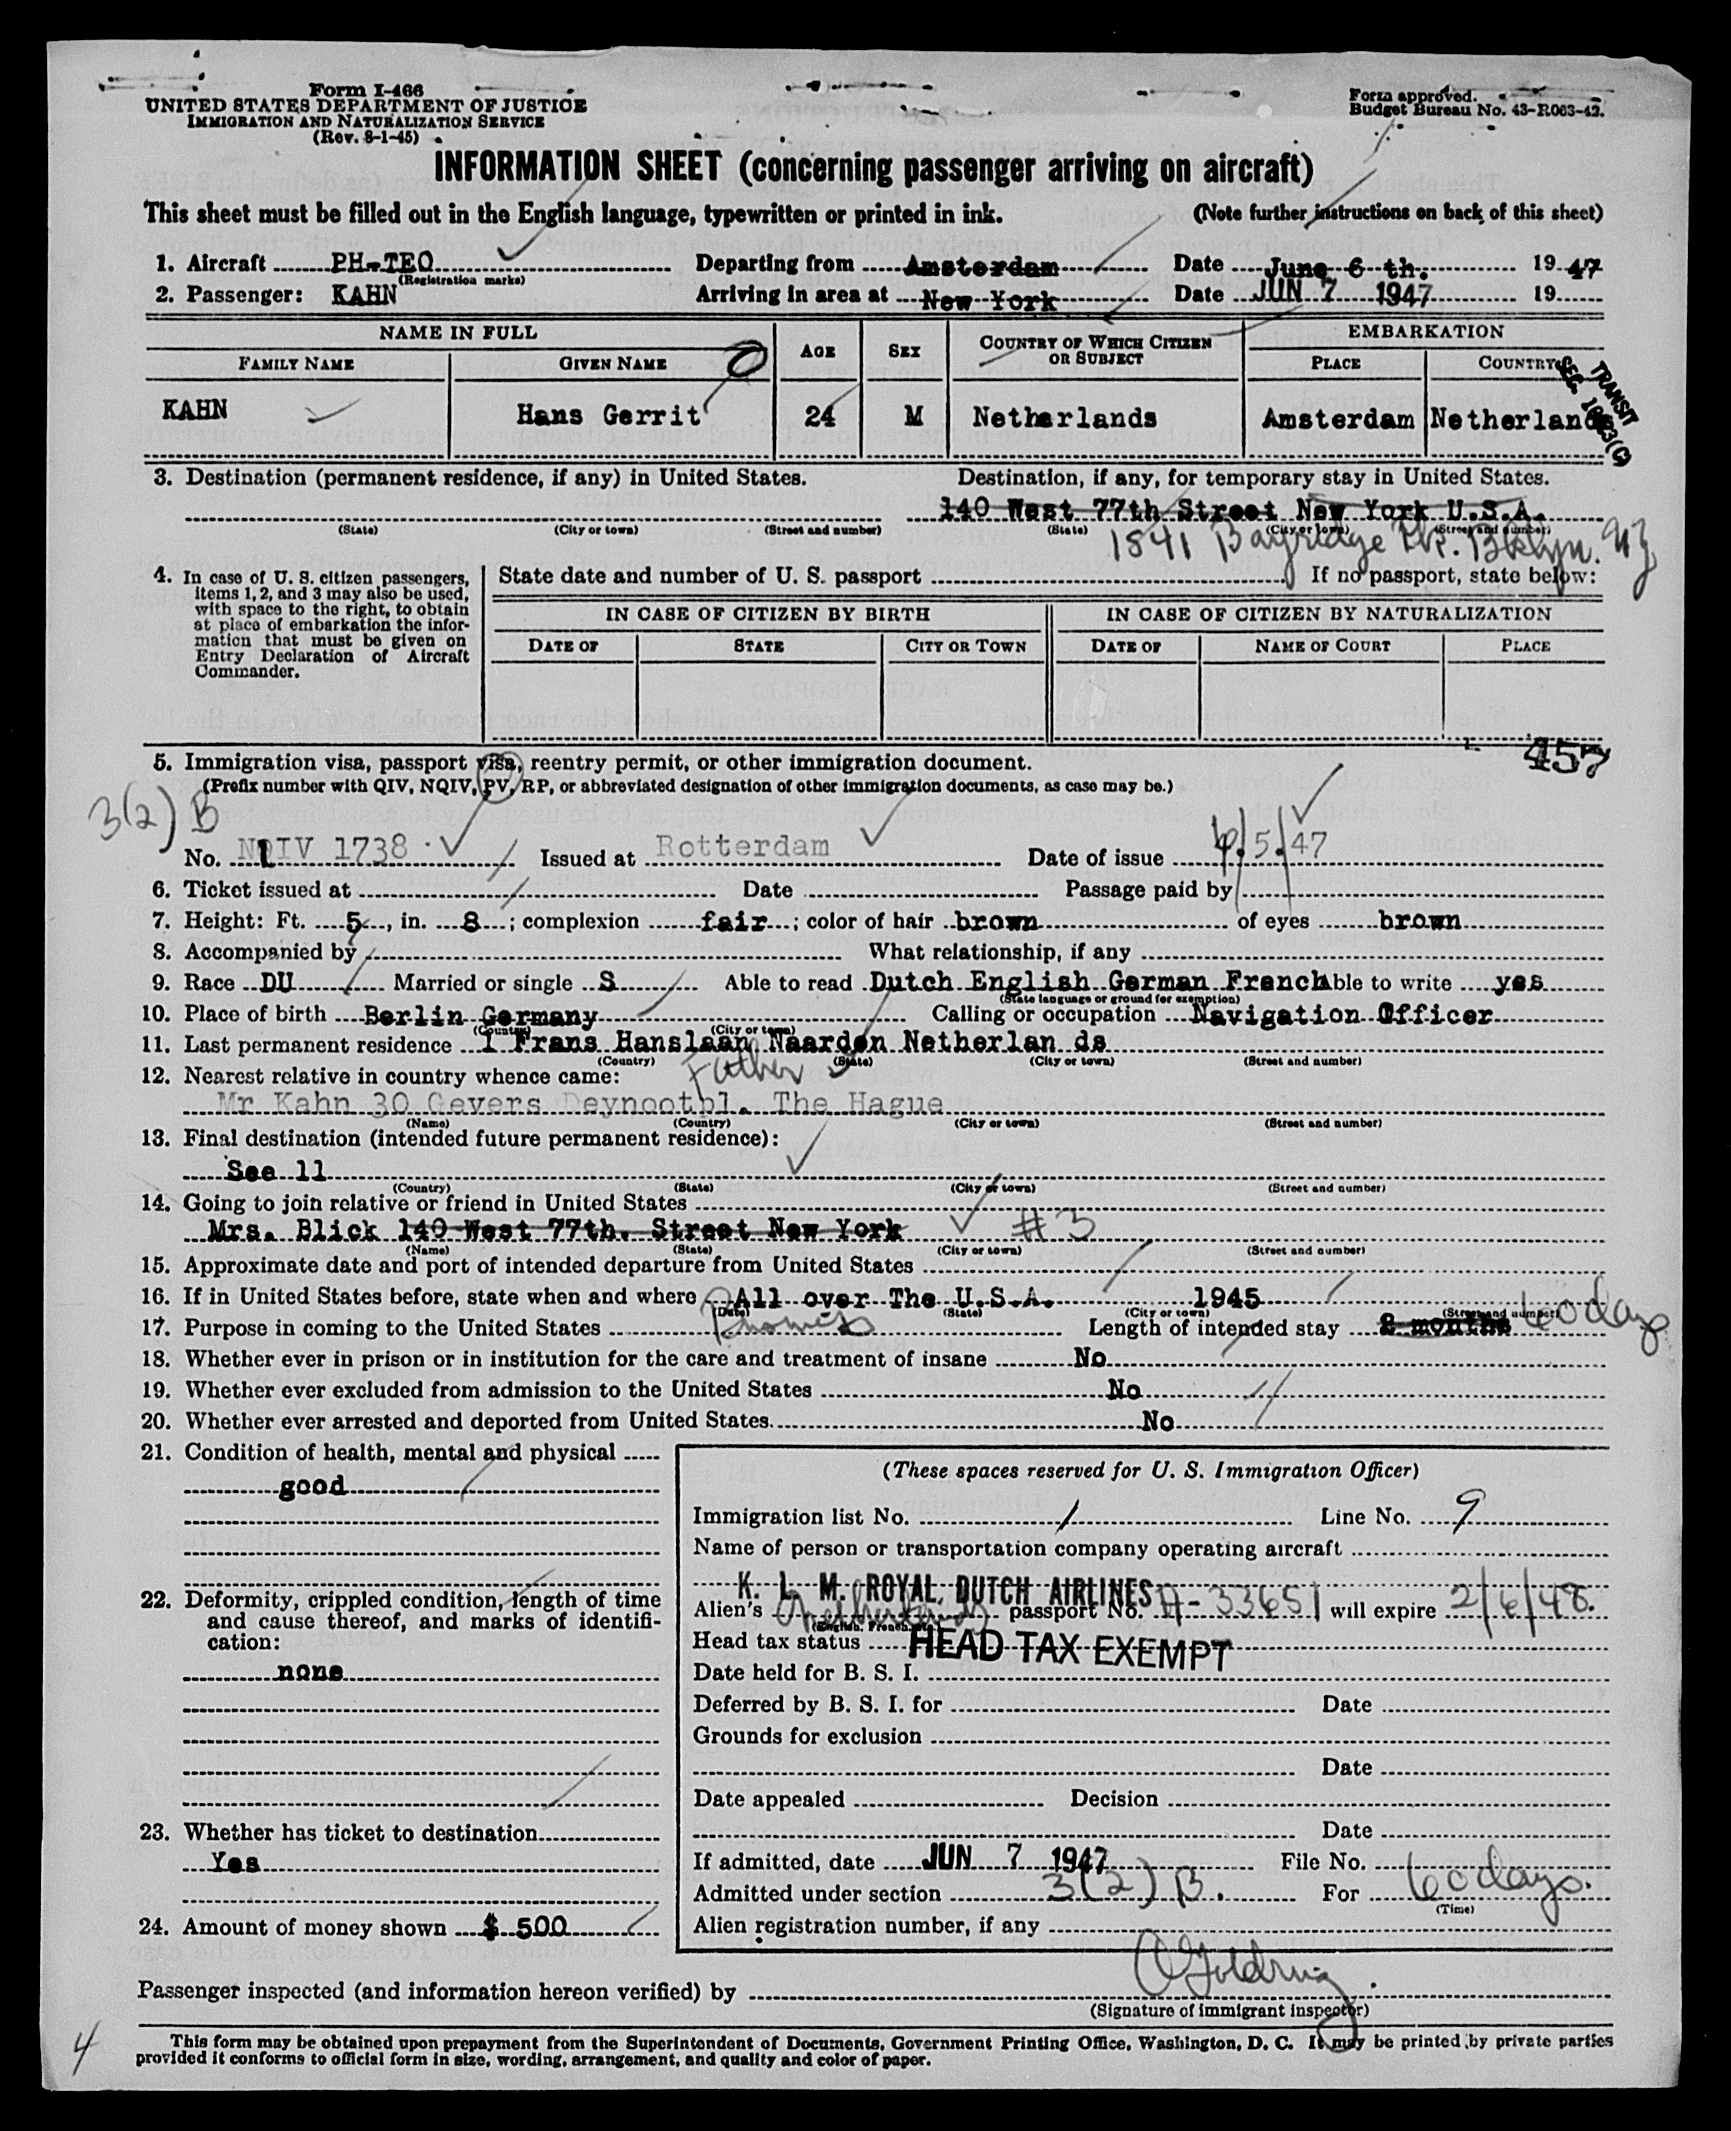 Form I-466
UNITED STATES DEPARTMENT OF JUSTICE
IMMIGRATION AND NATURALIZATION SERVICE
(Rev. 8-1-45)
Form approved.
Budget Bureau No. 43-R063-42.
INFORMATION SHEET (concerning passenger arriving on aircraft)
This sheet must be filled out in the English language, typewritten or printed in ink. (Note further instructions on back of this sheet)
1. Aircraft PH-TEO Departing from Amsterdam Date June 6 th. 19 47
(Registration marks)
2. Passenger: KAHN Arriving in area at New York Date JUN 7 1947 19
NAME IN FULL AGE SEX COUNTRY OF WHICH CITIZEN OR SUBJECT EMBARKATION
FAMILY NAME GIVEN NAME PLACE COUNTRY
TRANSIT
KAHN Hans Gerrit 24 M Netherlands Amsterdam Netherlands
3. Destination (permanent residence, if any) in United States. Destination, if any, for temporary stay in United States.
140 West 77th Street New York U.S.A.
(State) (City or town) (Street and number) (State) (City or town) (Street and number)
1841 Bayridge Bklyn. NY
4. In case of U. S. citizen passengers, items 1, 2, and 3 may also be used, with space to the right, to obtain at place of embarkation the information that must be given on Entry Declaration of Aircraft Commander.
State date and number of U. S. passport If no passport, state below:
IN CASE OF CITIZEN BY BIRTH IN CASE OF CITIZEN BY NATURALIZATION
DATE OF STATE CITY OR TOWN DATE OF NAME OF COURT PLACE
457
5. Immigration visa, passport visa, reentry permit, or other immigration document.
(Prefix number with QIV, NQIV, PV, RP, or abbreviated designation of other immigration documents, as case may be.)
3(2) B
No. NQIV 1738 Issued at Rotterdam Date of issue 4/5/47
6. Ticket issued at Date Passage paid by
7. Height: Ft. 5, in. 8; complexion fair; color of hair brown of eyes brown
8. Accompanied by What relationship, if any
9. Race DU Married or single S Able to read Dutch English German French Able to write yes
(State language or ground for exemption)
10. Place of birth Berlin Germany Calling or occupation Navigation Officer
(Country) (City or town)
11. Last permanent residence 1 Frans Hanslaan Naarden Netherlan ds
(Country) (State) (City or town) (Street and number)
12. Nearest relative in country whence came: Father
Mr Kahn 30 Gevers Deynootpl. The Hague
(Name) (Country) (City or town) (Street and number)
13. Final destination (intended future permanent residence):
See 11
(Country) (State) (City or town) (Street and number)
14. Going to join relative or friend in United States
Mrs. Blick 140 West 77th. Street New York #3
(Name) (State) (City or town) (Street and number)
15. Approximate date and port of intended departure from United States
16. If in United States before, state when and where All over The U.S.A. 1945
(Date) (State) (City or town) (Street and number)
17. Purpose in coming to the United States Length of intended stay 2 months 60 days
18. Whether ever in prison or in institution for the care and treatment of insane No
19. Whether ever excluded from admission to the United States No
20. Whether ever arrested and deported from United States. No
21. Condition of health, mental and physical
good
22. Deformity, crippled condition, length of time and cause thereof, and marks of identification:
none
23. Whether has ticket to destination
Yes
24. Amount of money shown $ 500
(These spaces reserved for U. S. Immigration Officer)
Immigration list No. 1 Line No. 9
Name of person or transportation company operating aircraft
K. L. M. ROYAL DUTCH AIRLINES
Alien's Netherlands passport No. A-33651 will expire 2/6/48.
(English, French, etc.)
Head tax status HEAD TAX EXEMPT
Date held for B. S. I.
Deferred by B. S. I. for Date
Grounds for exclusion
Date
Date appealed Decision
Date
If admitted, date JUN 7 1947 File No.
Admitted under section 3(2) B. For 60 days.
(Time)
Alien registration number, if any
Passenger inspected (and information hereon verified) by
(Signature of immigrant inspector)
4
This form may be obtained upon prepayment from the Superintendent of Documents, Government Printing Office, Washington, D. C. It may be printed by private parties
provided it conforms to official form in size, wording, arrangement, and quality and color of paper.